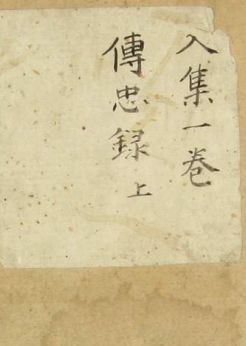 入集一巻
傳忠録上